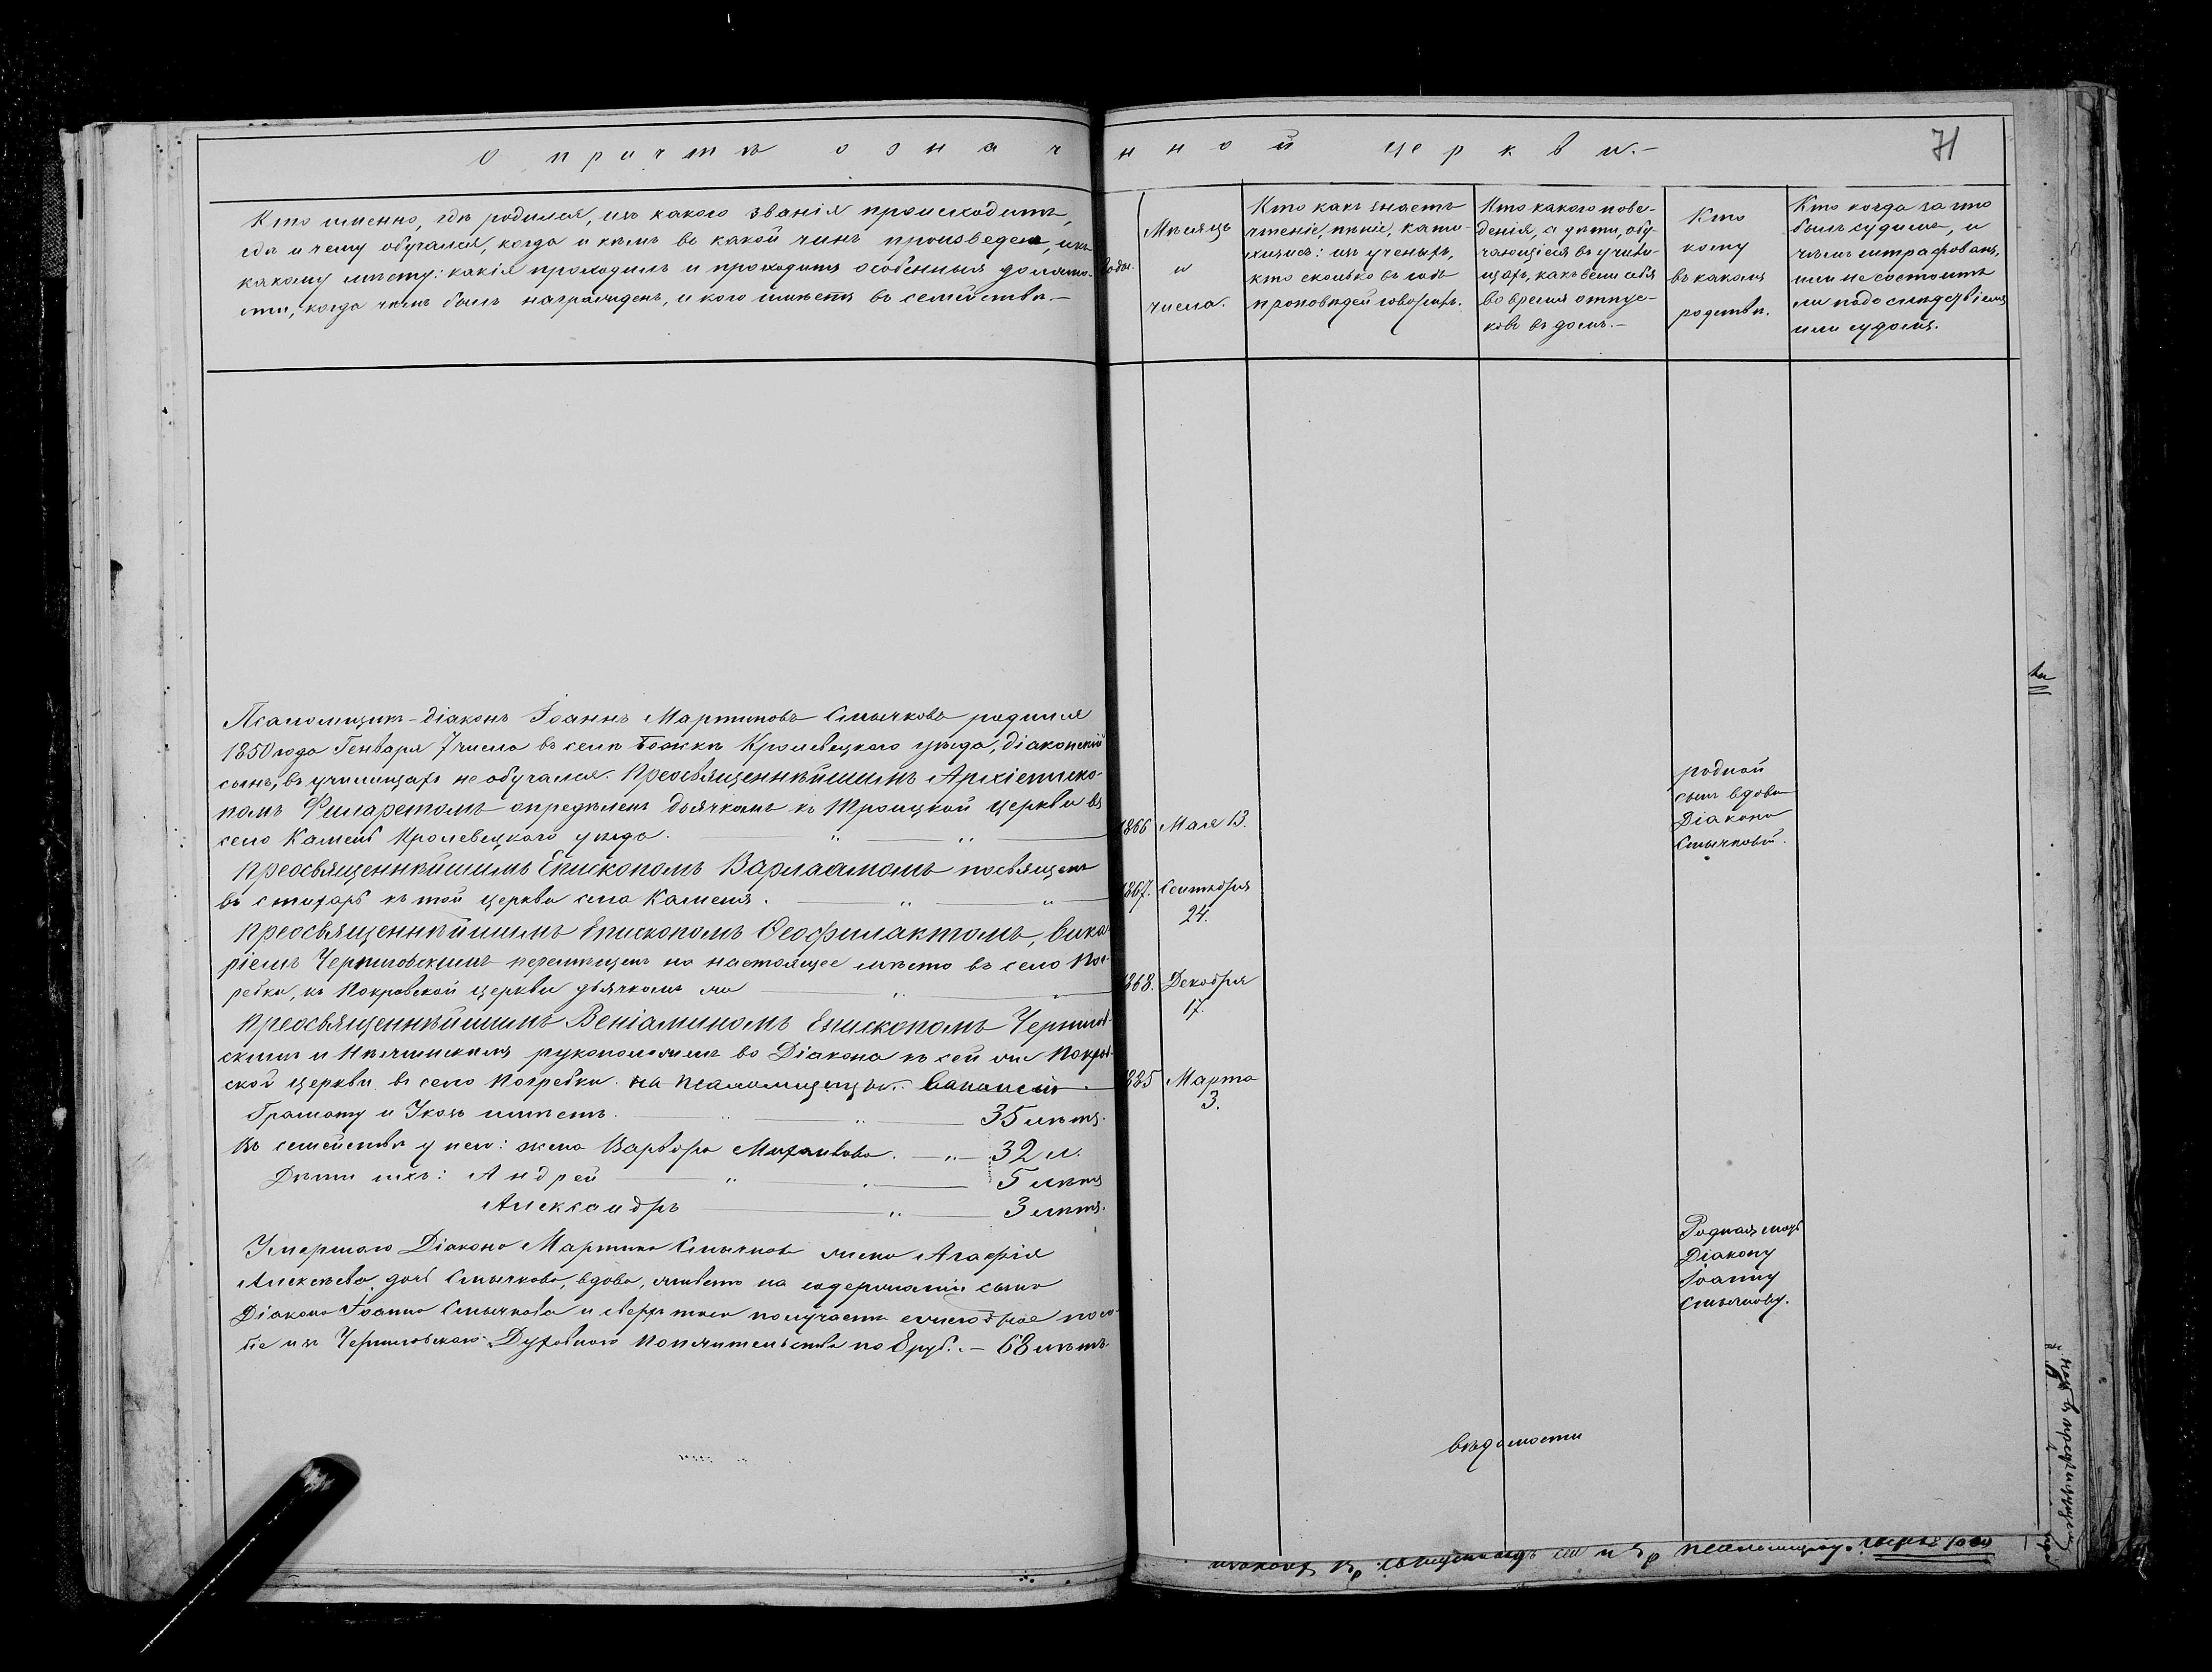 О причтѣ означ нной церкви.–
71
Кто именно, гдѣ родился, изъ какого званія происходитъ,
гдѣ и чему обучался, когда и кѣмъ во какой чинъ произведенъ, и къ
какому мѣсту: какія проходилъ и проходитъ особенныя должно-
сти, когда чѣмъ былъ награжденъ, и кого имѣетъ въ семействѣ.–
Годы.
Мѣсяцъ
и
числа.
Кто какъ знаетъ
чтеніе, пѣніе, кати-
хизисъ: изъ ученыхъ,
кто сколько въ годъ
проповѣдей говоритъ.
Кто какого пове-
денія, а дѣти, обу-
чающіеся въ учили-
щахъ, какъ вели себя
во время отпус-
ковъ въ домъ.–
Кто
кому
въ какомъ
родствѣ.
Кто когда за что
былъ судимъ, и
чѣмъ штрафованъ,
или не состоитъ
ли подъ слѣдствіемъ
или судомъ.
Псаломщикъ-діаконъ Іоаннъ Мартиновъ Смычковъ родился
1850 года Генваря 7 числа въ селѣ Божкѣ Кролевецкого уѣзда, діаконскій
сынъ, въ училищахъ не обучался. Преосвященнѣйшимъ Архіеписко-
помъ Филаретомъ опредѣленъ дьячкомъ къ Троицкой церкви въ
село Камень Кролевецкого уѣзда.
1866 Мая 13.
родной
сынъ вдовы
Діакона
Смычковой.
Преосвященнѣйшимъ Епископомъ Варлаамомъ посвященъ
въ стихарь къ той церкви села Каменя.
1867. Сентября
24.
Преосвященнѣйшимъ Епископомъ Ѳеофилактомъ, Вика-
ріемъ Черниговскимъ перемѣщенъ на настоящее мѣсто въ село Пог-
ребки, къ Покровской церкви дьячкомъ же
1868. Декабря
17.
Преосвященнѣйшимъ Веніаминомъ Епископомъ Чернигов-
скимъ и Нѣжинскимъ рукоположенъ во Діакона къ сей же Покров-
ской церкви въ село Погребки на псаломщицкой вакансіи.
1885 Марта
3.
Грамоту и Указъ имѣетъ. 35 лѣтъ.
Въ семействѣ у него: жена Варвара Михаилова. 32 л.
Дѣти ихъ: Андрей 5 лѣтъ
Александръ 3 лѣтъ.
Умершаго Діакона Мартина Смычкова жена Агафія
Алексѣева дочь Смычкова, вдова, живетъ на содержаніи сына
Діакона Іоанна Смычкова и сверхъ того получаетъ ежегодное посо-
біе изъ Черниговскаго Духовнаго Попечительства по 8 руб. – 68 лѣтъ
Родная мать
Діакону
Іоанну
Смычкову.
вѣдомости